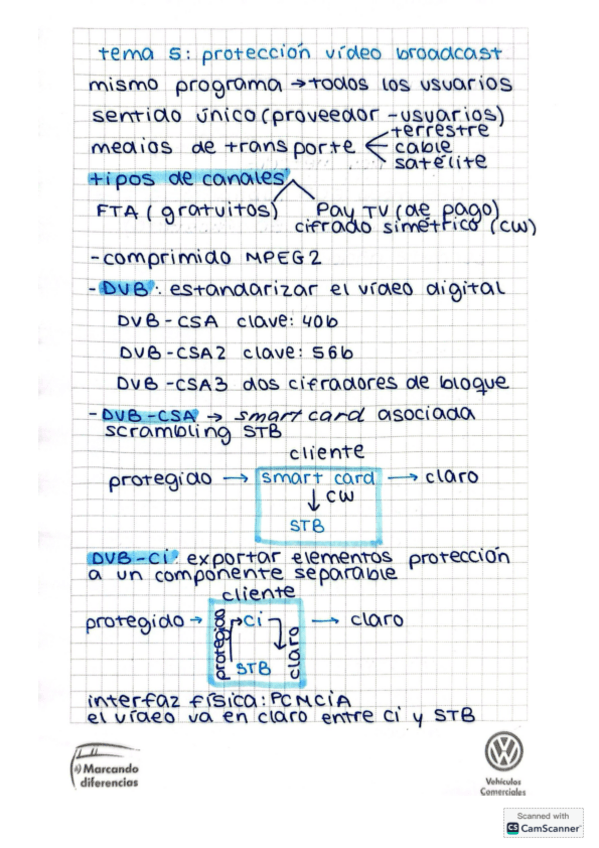 tema 5: protección vídeo broadcast
mismo programa → todos los usuarios
sentido único (proveedor - usuarios)
medios de transporte
terrestre
cable
satélite
tipos de canales
FTA (gratuitos)
Pay TV (de pago)
cifrado simétrico (CW)
- comprimido MPEG2
- DVB: estandarizar el vídeo digital
DVB-CSA clave: 40b
DVB-CSA2 clave: 56b
DVB-CSA3 dos cifradores de bloque
- DVB-CSA → smart card asociada
scrambling STB
cliente
protegido → smart card → claro
↓ CW
STB
DVB-Ci: exportar elementos protección
a un componente separable
cliente
protegido → ci → claro
protegido
claro
STB
interfaz física: PCMCiA
el vídeo va en claro entre ci y STB
Marcando
diferencias
Vehículos
Comerciales
Scanned with
CS CamScanner